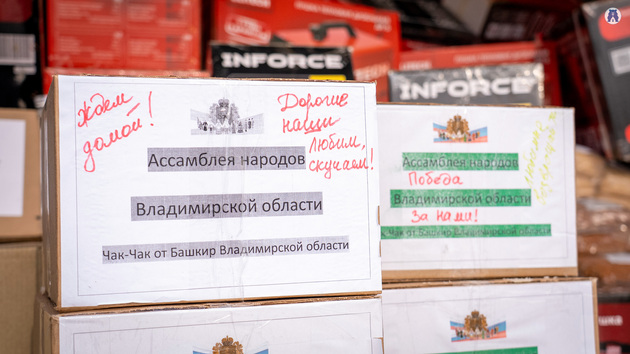 INFORCE
INFORCE
Ждем
домой!
Дорогие
наши
Любим,
скучаем!
Ассамблея народов
Владимирской области
Чак-Чак от Башкир Владимирской области
Ассамблея народов
Победа
Владимирской области
За нами!
Чак-Чак от Башкир Владимирской области